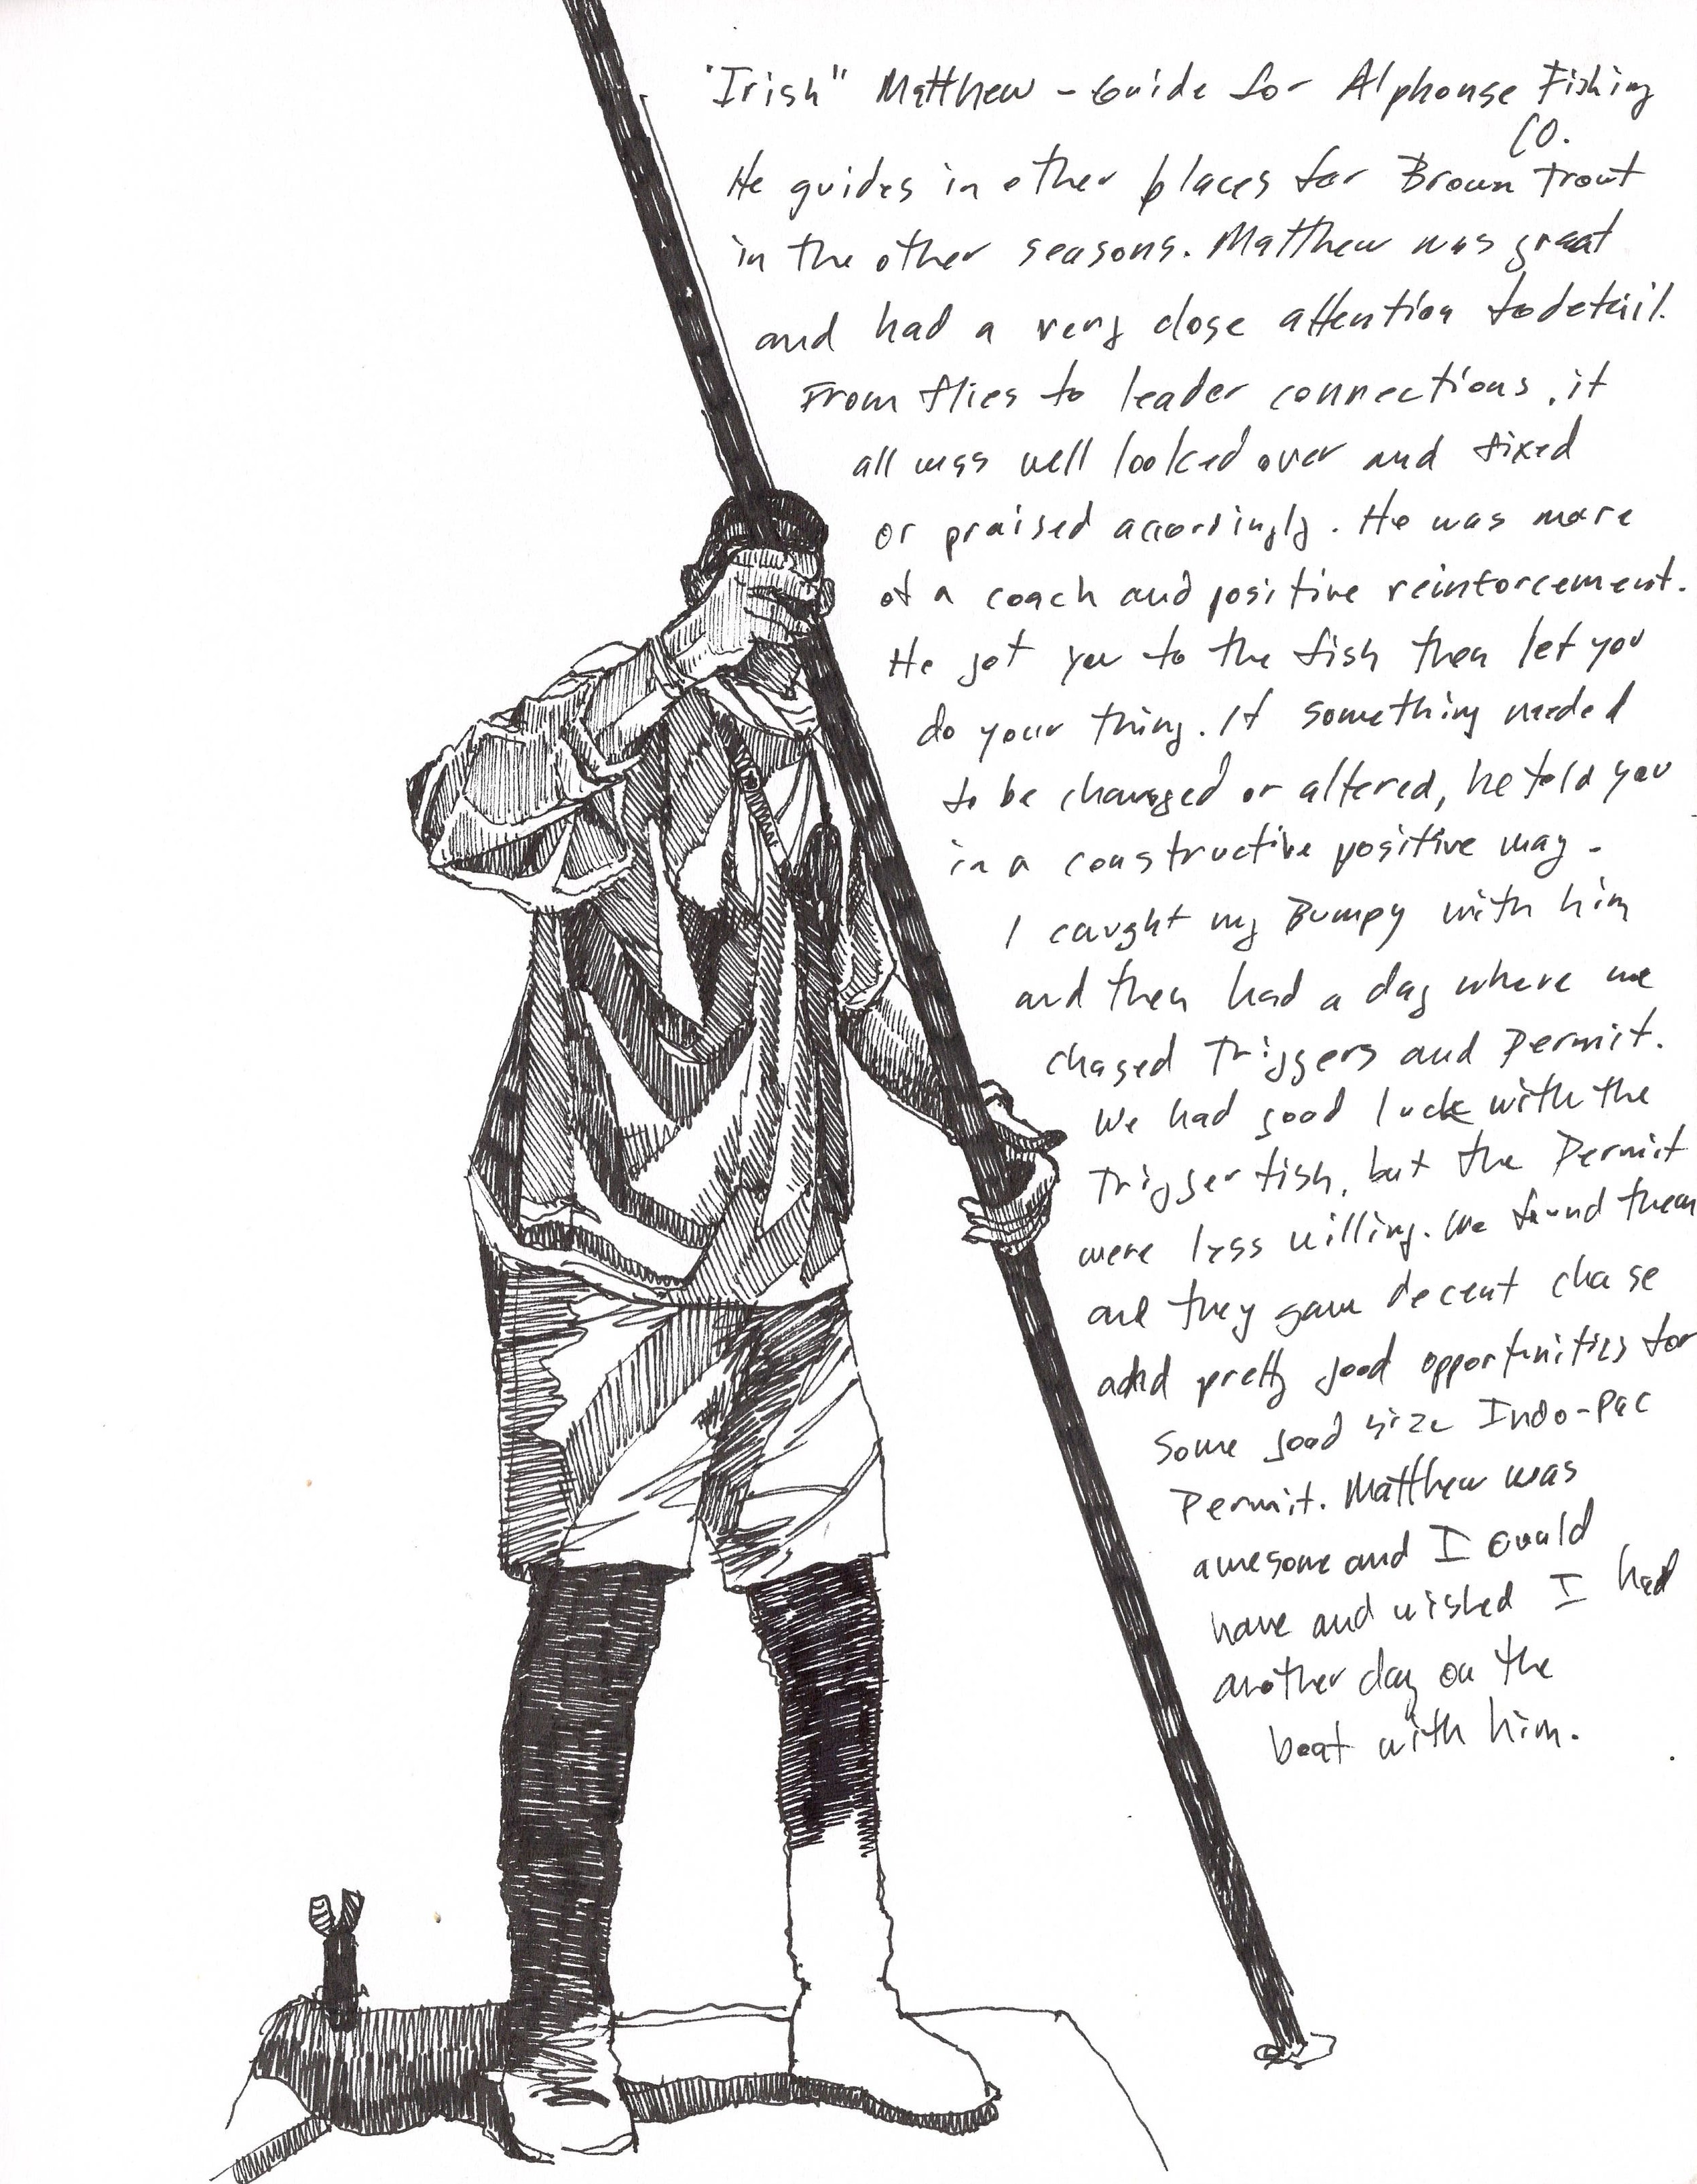 "Irish" Matthew - Guide for Alphonse Fishing
CO.
He guides in other places for Brown Trout
in the other seasons. Matthew was great
and had a very close attention to detail.
From flies to leader connections, it
all was well looked over and fixed
or praised accordingly. He was more
of a coach and positive reinforcement.
He got you to the fish then let you
do your thing. If something needed
to be changed or altered, he told you
in a constructive positive way.
I caught my Bumpy with him
and then had a day where we
chased Triggers and Permit.
We had good luck with the
Triggerfish, but the Permit
were less willing. We found them
and they gave decent chase
and pretty good opportunities for
some good size Indo-Pac
Permit. Matthew was
awesome and I could
have and wished I had
another day on the
boat with him.